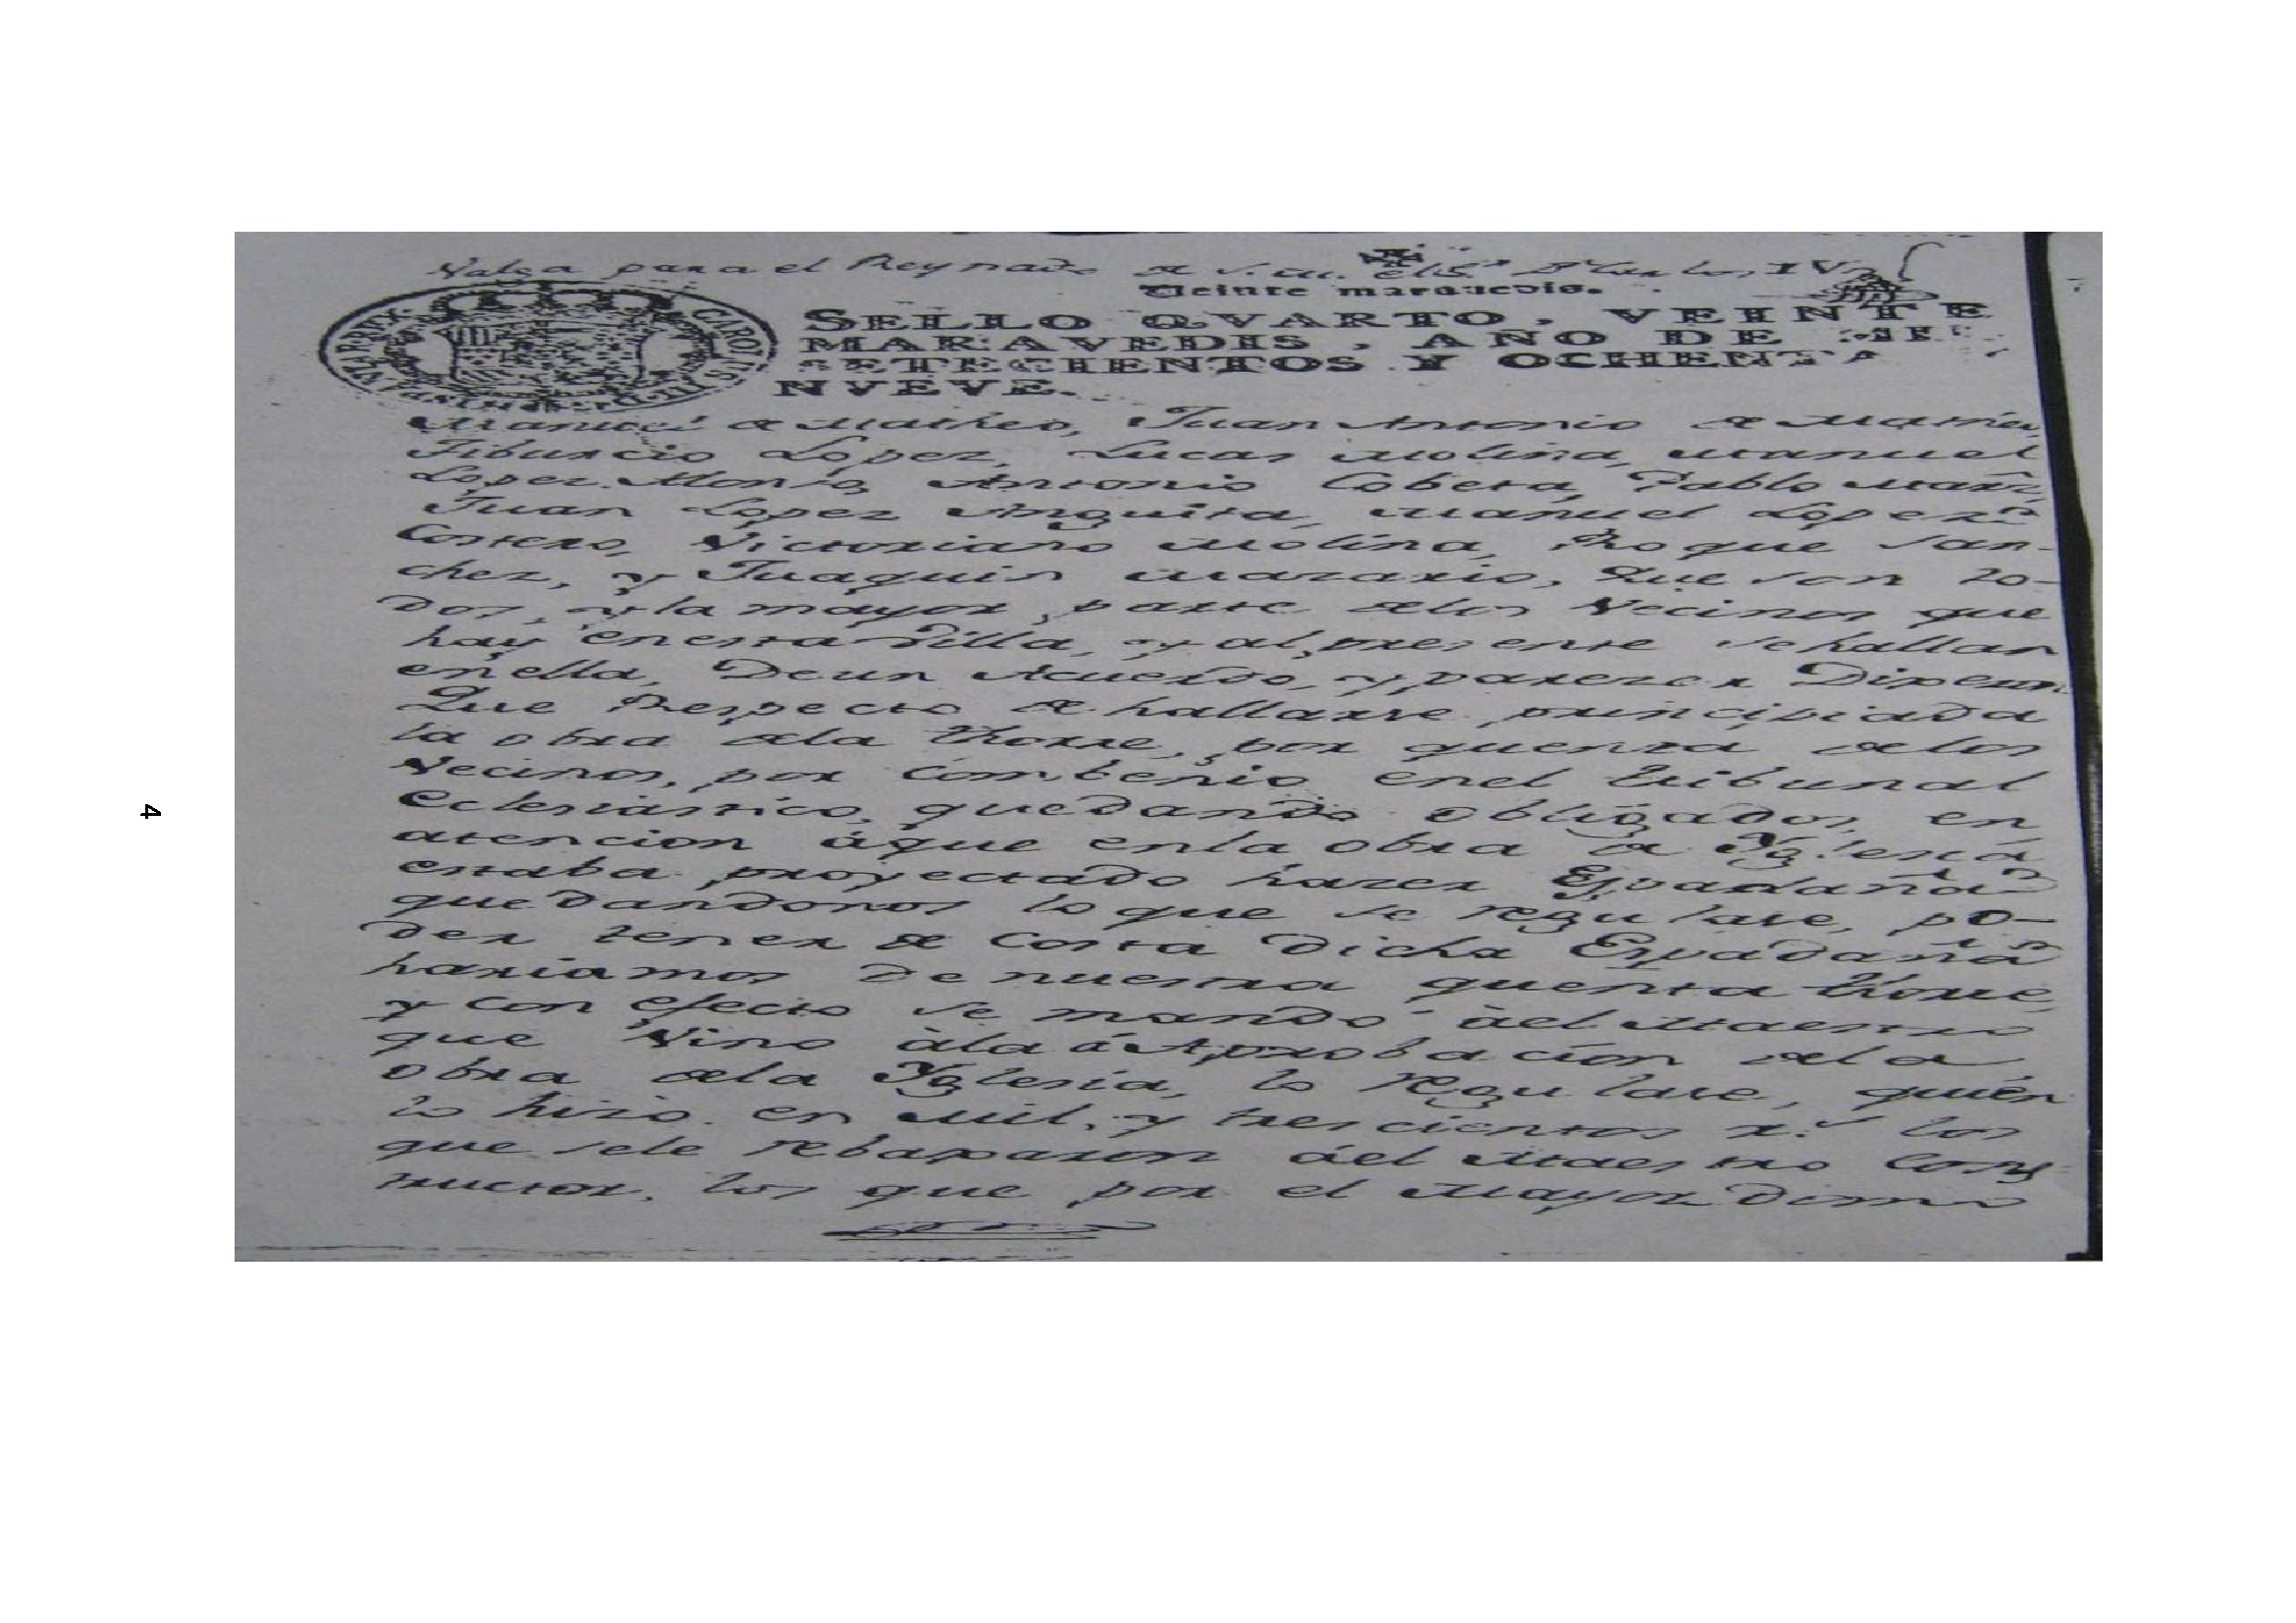 Valga para el Reynado de S. M. el S.r D.n Carlos IV
Veinte maravedis.
SELLO QVARTO, VEINTE
MARAVEDIS, AÑO DE MIL
SETECIENTOS Y OCHENTA
NVEVE.
Manuel de Matheo, Juan Antonio de
Tiburcio Lopez, Lucas Molina, Manuel
Lopez Antonio Cobeta, Pablo
Juan Lopez Anguita, Manuel Lopez
Costero, Victoriano Molina, Roque San-
chez, y Juaquin Mazario, Que son to-
dos, y la mayor parte delos Vecinos que
hay en esta Villa, y al presente se hallan
en ella, De un Acuerdo, y parezer Dixeron
Que Respecto de hallarse principiada
la obra dela thorre, por quenta delos
Vecinos, por combenio enel tribunal
Eclesiastico, quedando obligados, en
atencion áque enla obra de Yglesia
estaba proyectado hazer Espadaña
quedandonos lo que se regulase, po-
der tener de Costa dicha Espadaña
hariamos de nuestra quenta thorre,
y con efecto se mando àel Maestro
que Vino àla áAprobacion dela
obra dela Yglesia, lo Regulase, quien
lo hizo en Mil, y trescientos r.s los
que sele rebaxaron áel Maestro Cons-
tructor, los que por el Mayordomo
4